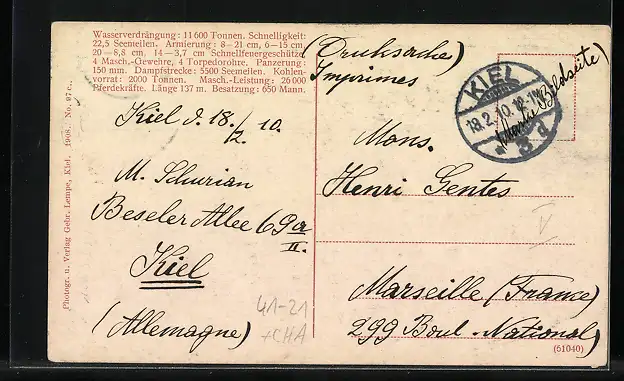 Wasserverdrängung: 11600 Tonnen. Schnelligkeit:
22,5 Seemeilen. Armierung: 8—21 cm, 6—15 cm,
20—8,8 cm, 14—3,7 cm Schnellfeuergeschütze
4 Masch.-Gewehre, 4 Torpedorohre. Panzerung:
150 mm. Dampfstrecke: 5500 Seemeilen. Kohlen-
vorrat: 2000 Tonnen. Masch.-Leistung: 26000
Pferdekräfte. Länge 137 m. Besatzung: 650 Mann.
Photogr. u. Verlag Gebr. Lempe, Kiel. 1908. No. 97c.
Kiel d. 18./2. 10.
M. Schurian
Beseler Allee 69a
II.
Kiel
(Allemagne)
41-21
+CHA
(Drucksache)
Imprimés
KIEL
18.2.10.12-1N
* 3 d
(Marke Bildseite)
Mons.
Henri Gentes
V
Marseille (France)
299 Boul. National
(61040)